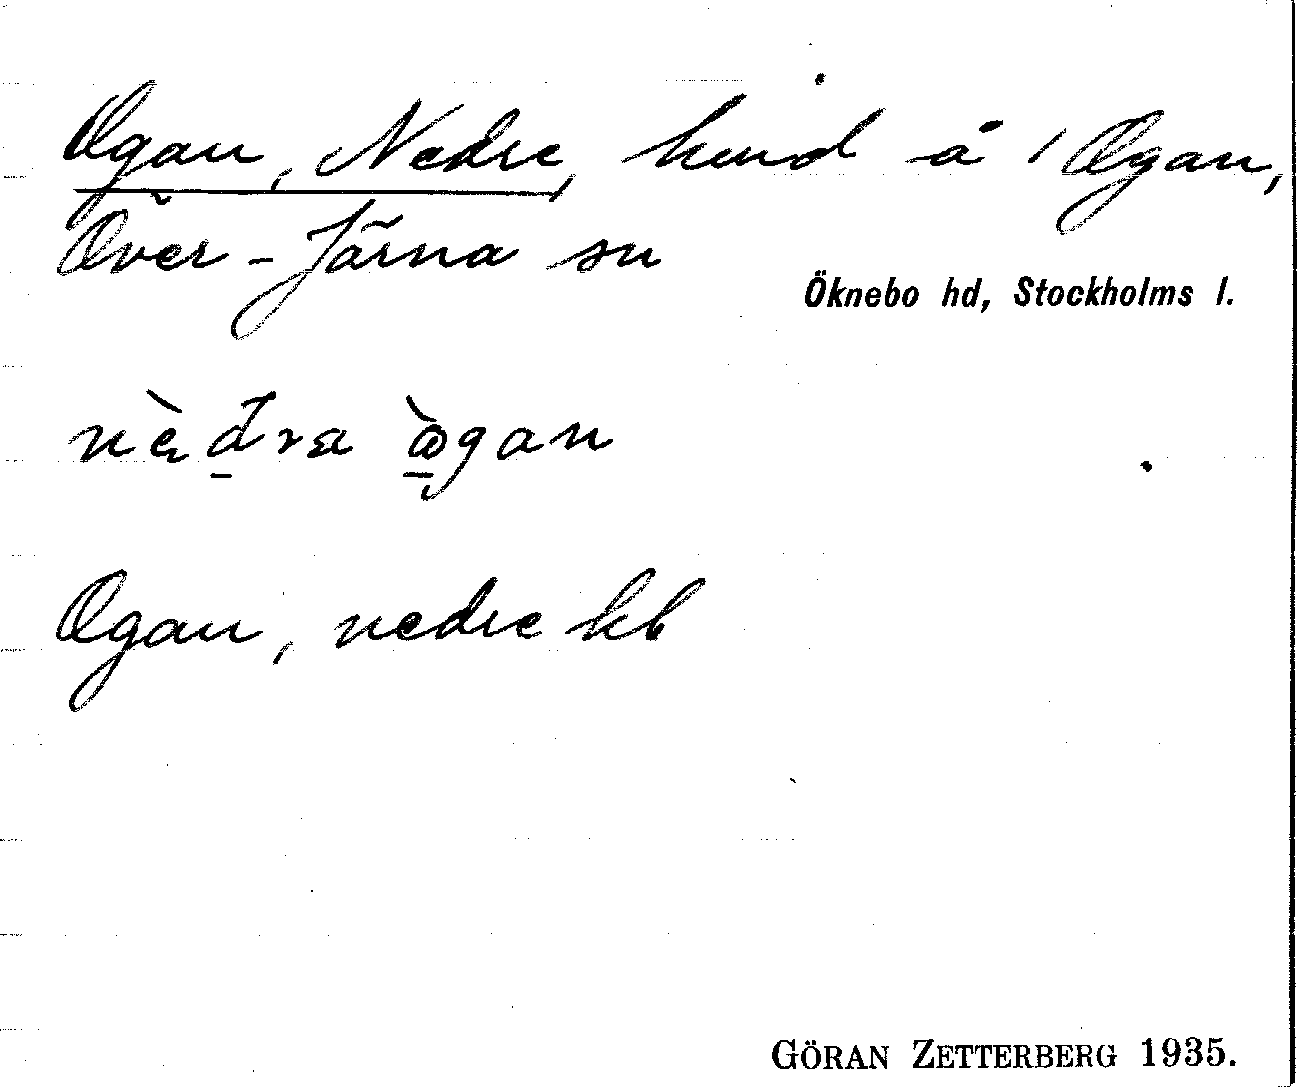 Ogan, Nedre, hmd å 1 Ogan,
Över-Järna sn
Öknebo hd, Stockholms l.
Ogan, nedre kb
GÖRAN ZETTERBERG 1935.